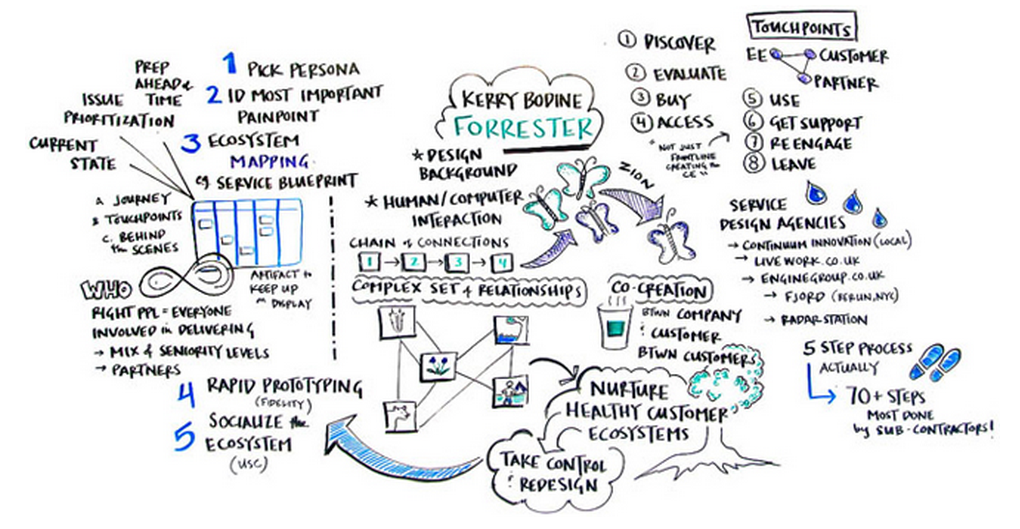 KERRY BODINE
FORRESTER
* DESIGN
BACKGROUND
* HUMAN/COMPUTER
INTERACTION
CHAIN of CONNECTIONS
1 → 2 → 3 → 4
COMPLEX SET of RELATIONSHIPS
ZION
CO-CREATION
BTWN COMPANY
& CUSTOMER
BTWN CUSTOMERS
NURTURE
HEALTHY CUSTOMER
ECOSYSTEMS
TAKE CONTROL
& REDESIGN
1 PICK PERSONA
2 ID MOST IMPORTANT
PAINPOINT
3 ECOSYSTEM
MAPPING
eg SERVICE BLUEPRINT
PREP
AHEAD of
TIME
ISSUE
PRIORITIZATION
CURRENT
STATE
A. JOURNEY
B. TOUCHPOINTS
C. BEHIND
the SCENES
ARTIFACT to
KEEP UP
on DISPLAY
WHO
RIGHT PPL = EVERYONE
INVOLVED in DELIVERING
→ MIX of SENIORITY LEVELS
→ PARTNERS
4 RAPID PROTOTYPING
(FIDELITY)
5 SOCIALIZE the
ECOSYSTEM
(USC)
TOUCHPOINTS
EE
CUSTOMER
PARTNER
1 DISCOVER
2 EVALUATE
3 BUY
4 ACCESS
* NOT JUST
FRONTLINE
CREATING the
5 USE
6 GET SUPPORT
7 REENGAGE
8 LEAVE
SERVICE
DESIGN AGENCIES
→ CONTINUUM INNOVATION (LOCAL)
→ LIVEWORK.CO.UK
→ ENGINEGROUP.CO.UK
→ FJORD (BERLIN, NYC)
→ RADARSTATION
5 STEP PROCESS
ACTUALLY
70+ STEPS
MOST DONE
by SUB-CONTRACTORS!